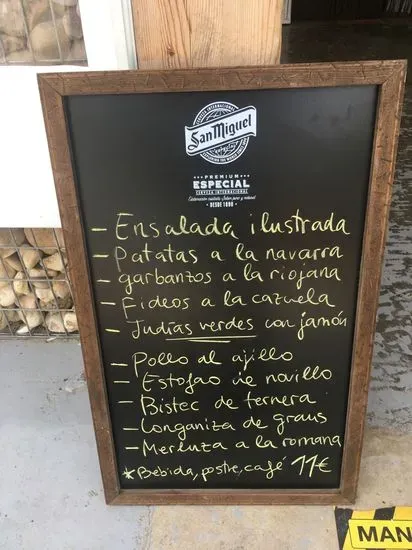 CERVEZA INTERNACIONAL
San Miguel
PREMIUM
ESPECIAL
CERVEZA INTERNACIONAL
DESDE 1890
- Ensalada ilustrada
- Patatas a la navarra
- garbanzos a la riojana
- Fideos a la cazuela
- Judías verdes con jamón
- Pollo al ajillo
- Estofao de novillo
- Bistec de ternera
- Longaniza de graus
- Merluza a la romana
*Bebida, postre, café 11€
MAN